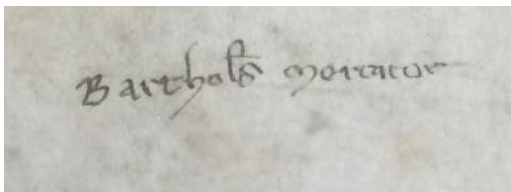 Barthols mercator